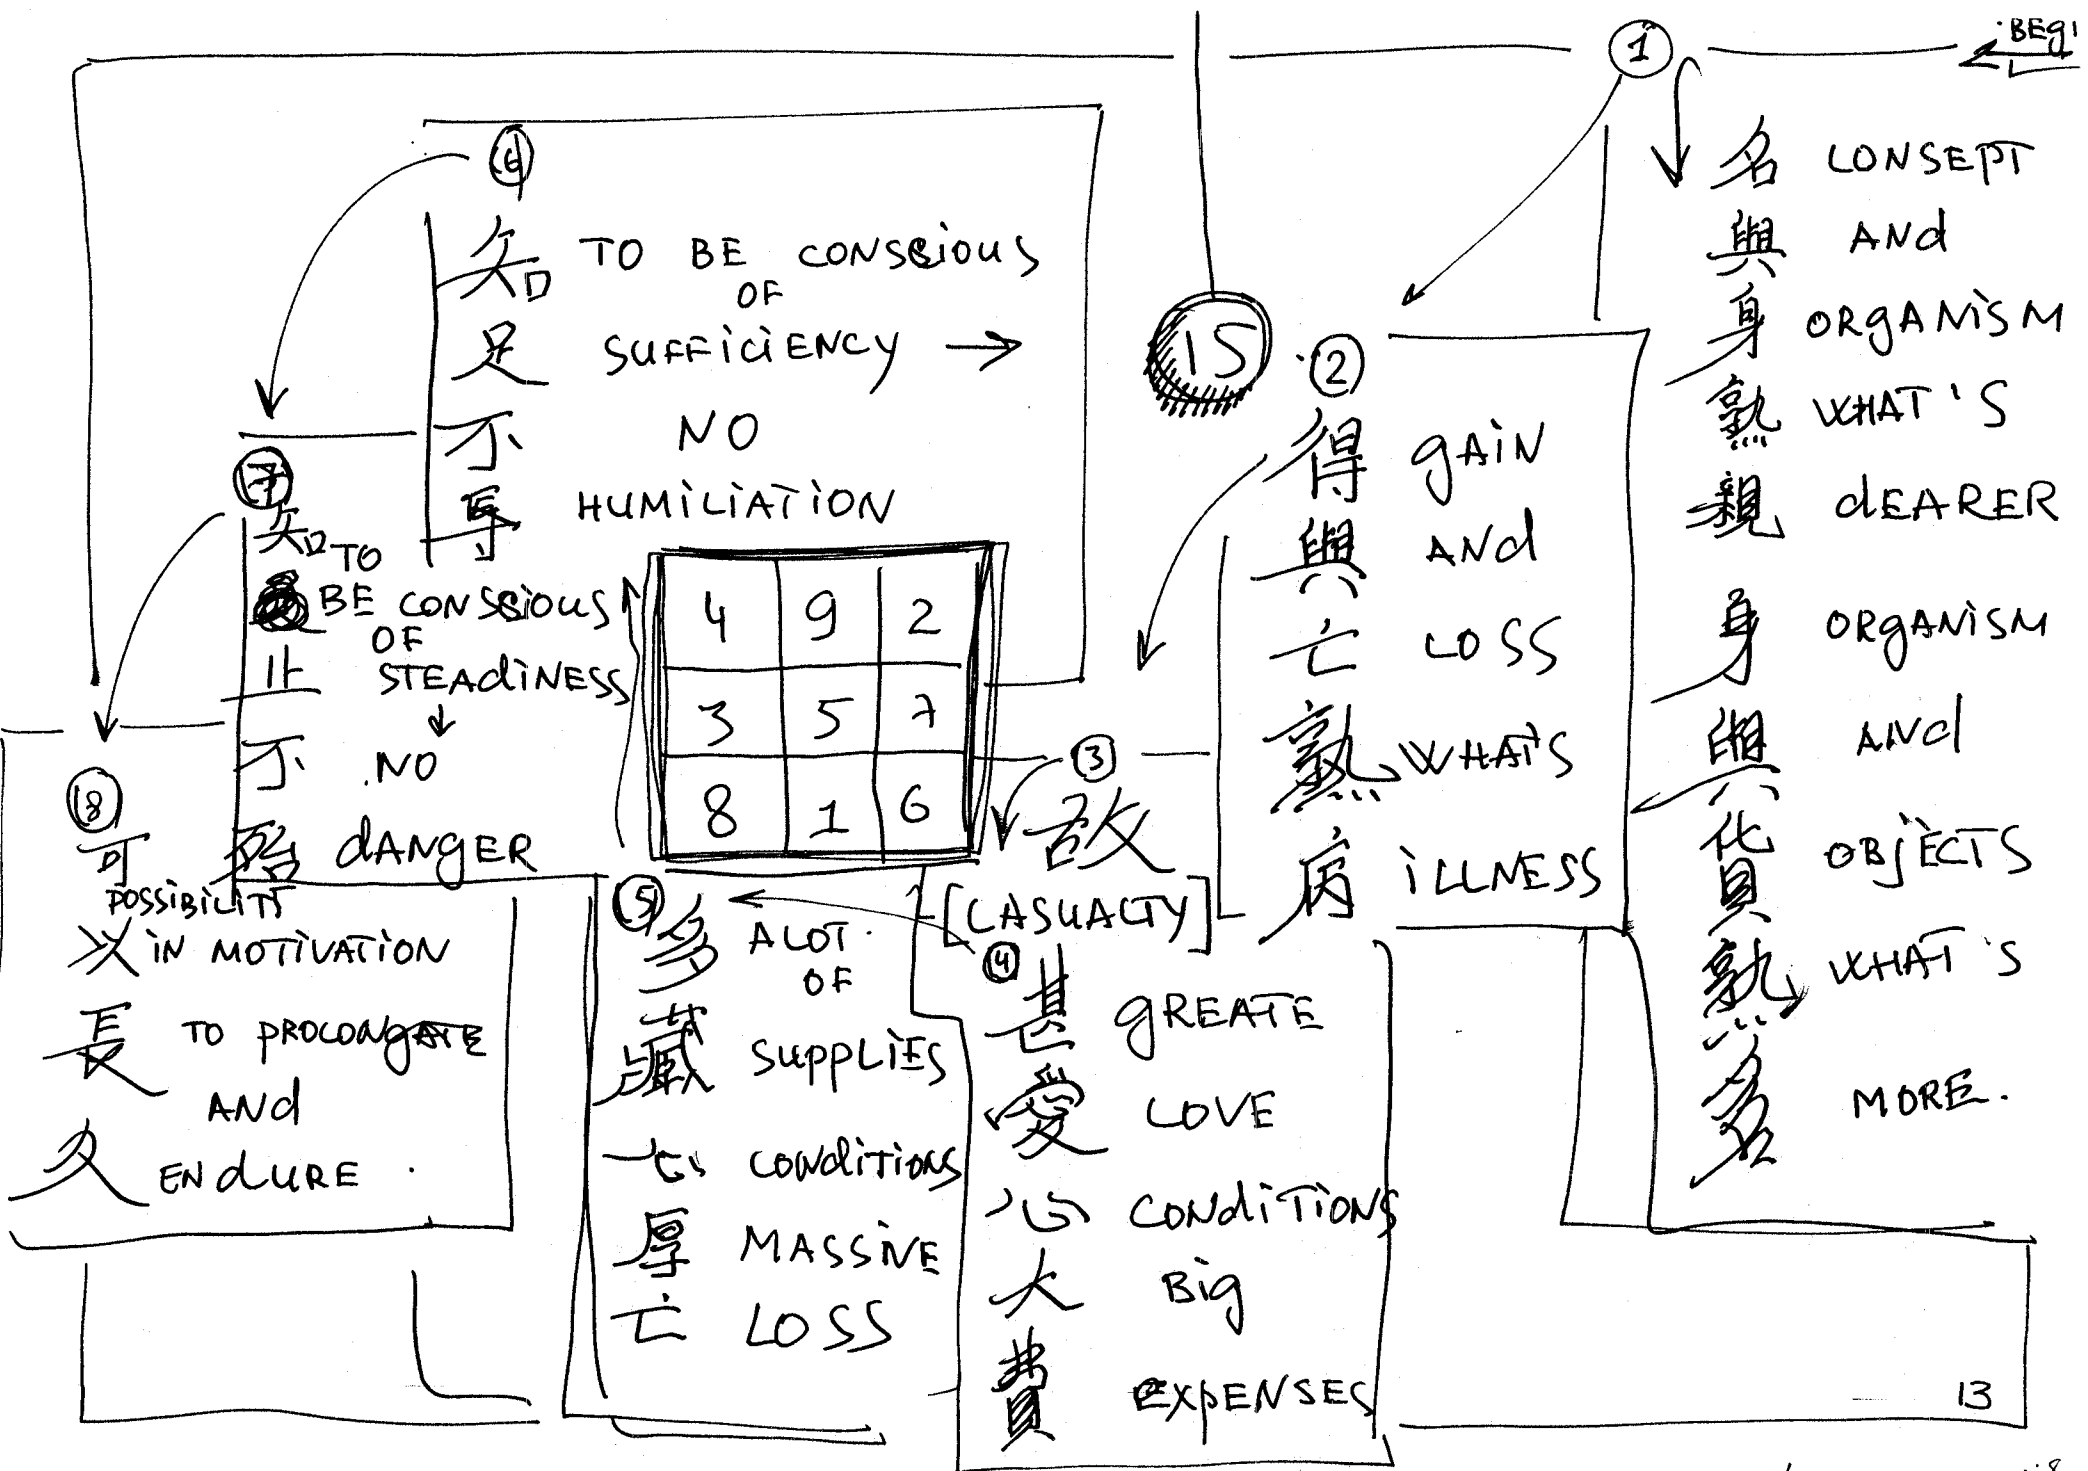 BEGI
1
名 CONSEPT
與 ANd
身 ORgANiSM
熟 WHAT'S
親 dEARER
身 ORgANiSM
與 ANd
貨 OBjECTS
熟 WHAT'S
多 MORE.
15
2
得 gAiN
與 ANd
亡 LOSS
熟 WHAT'S
病 iLLNESS
3
故
[CASUALTY]
4
甚 gREATE
愛 LOVE
必 CONdiTiONS
大 Big
費 EXpENSES
5
多 A LOT
OF
藏 SuppLiES
必 CONdiTiONS
厚 MASSiVE
亡 LOSS
6
知 TO BE CONSCiOuS
OF
足 SuFFiCiENCy →
不 NO
辱 HuMiLiATiON
7
知 TO
BE CONSCiOuS
OF
止 STEAdiNESS
↓
不 NO
殆 dANgER
8
可
POSSiBiLiTY
以 iN MOTiVATiON
長 TO pROLONgATE
ANd
久 ENduRE.
4 9 2
3 5 7
8 1 6
13